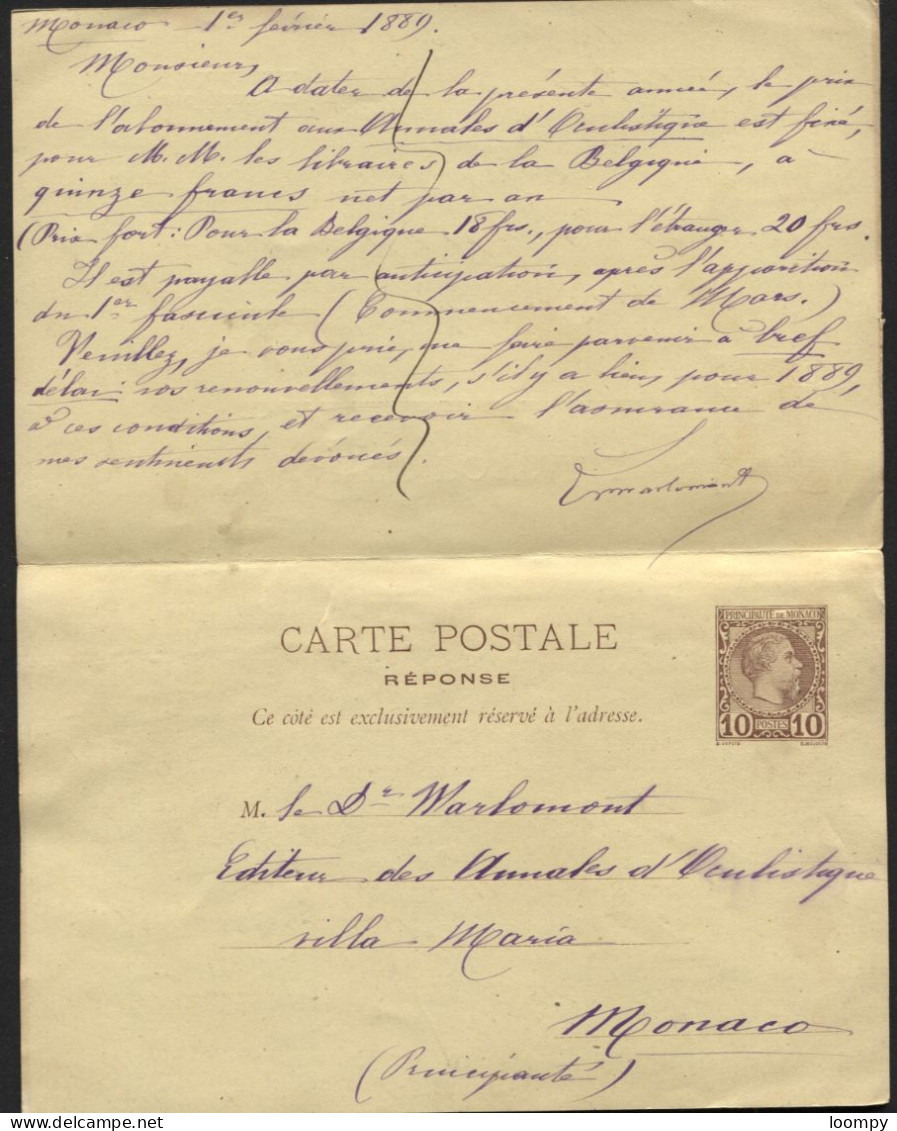 Monaco 1er février 1889.
Monsieur,
A dater de la présente année, le prix
de l'abonnement aux Annales d'Oculistique est fixé,
pour M. M. les libraires de la Belgique, à
quinze francs net par an
(Prix fort: Pour la Belgique 18 frs., pour l'étranger 20 frs.
Il est payable par anticipation, après l'apparition
du 1er fascicule (Commencement de Mars.)
Veuillez, je vous prie, me faire parvenir à bref
délai vos renouvellements, s'il y a lieu, pour 1889,
à ces conditions, et recevoir l'assurance de
mes sentiments dévoués.
Warlomont
CARTE POSTALE
RÉPONSE
Ce côté est exclusivement réservé à l'adresse.
PRINCIPAUTÉ DE MONACO
10 POSTES 10
M. le Dr Warlomont
Editeur des Annales d'Oculistique
villa Maria
Monaco
(Principauté)
loompy